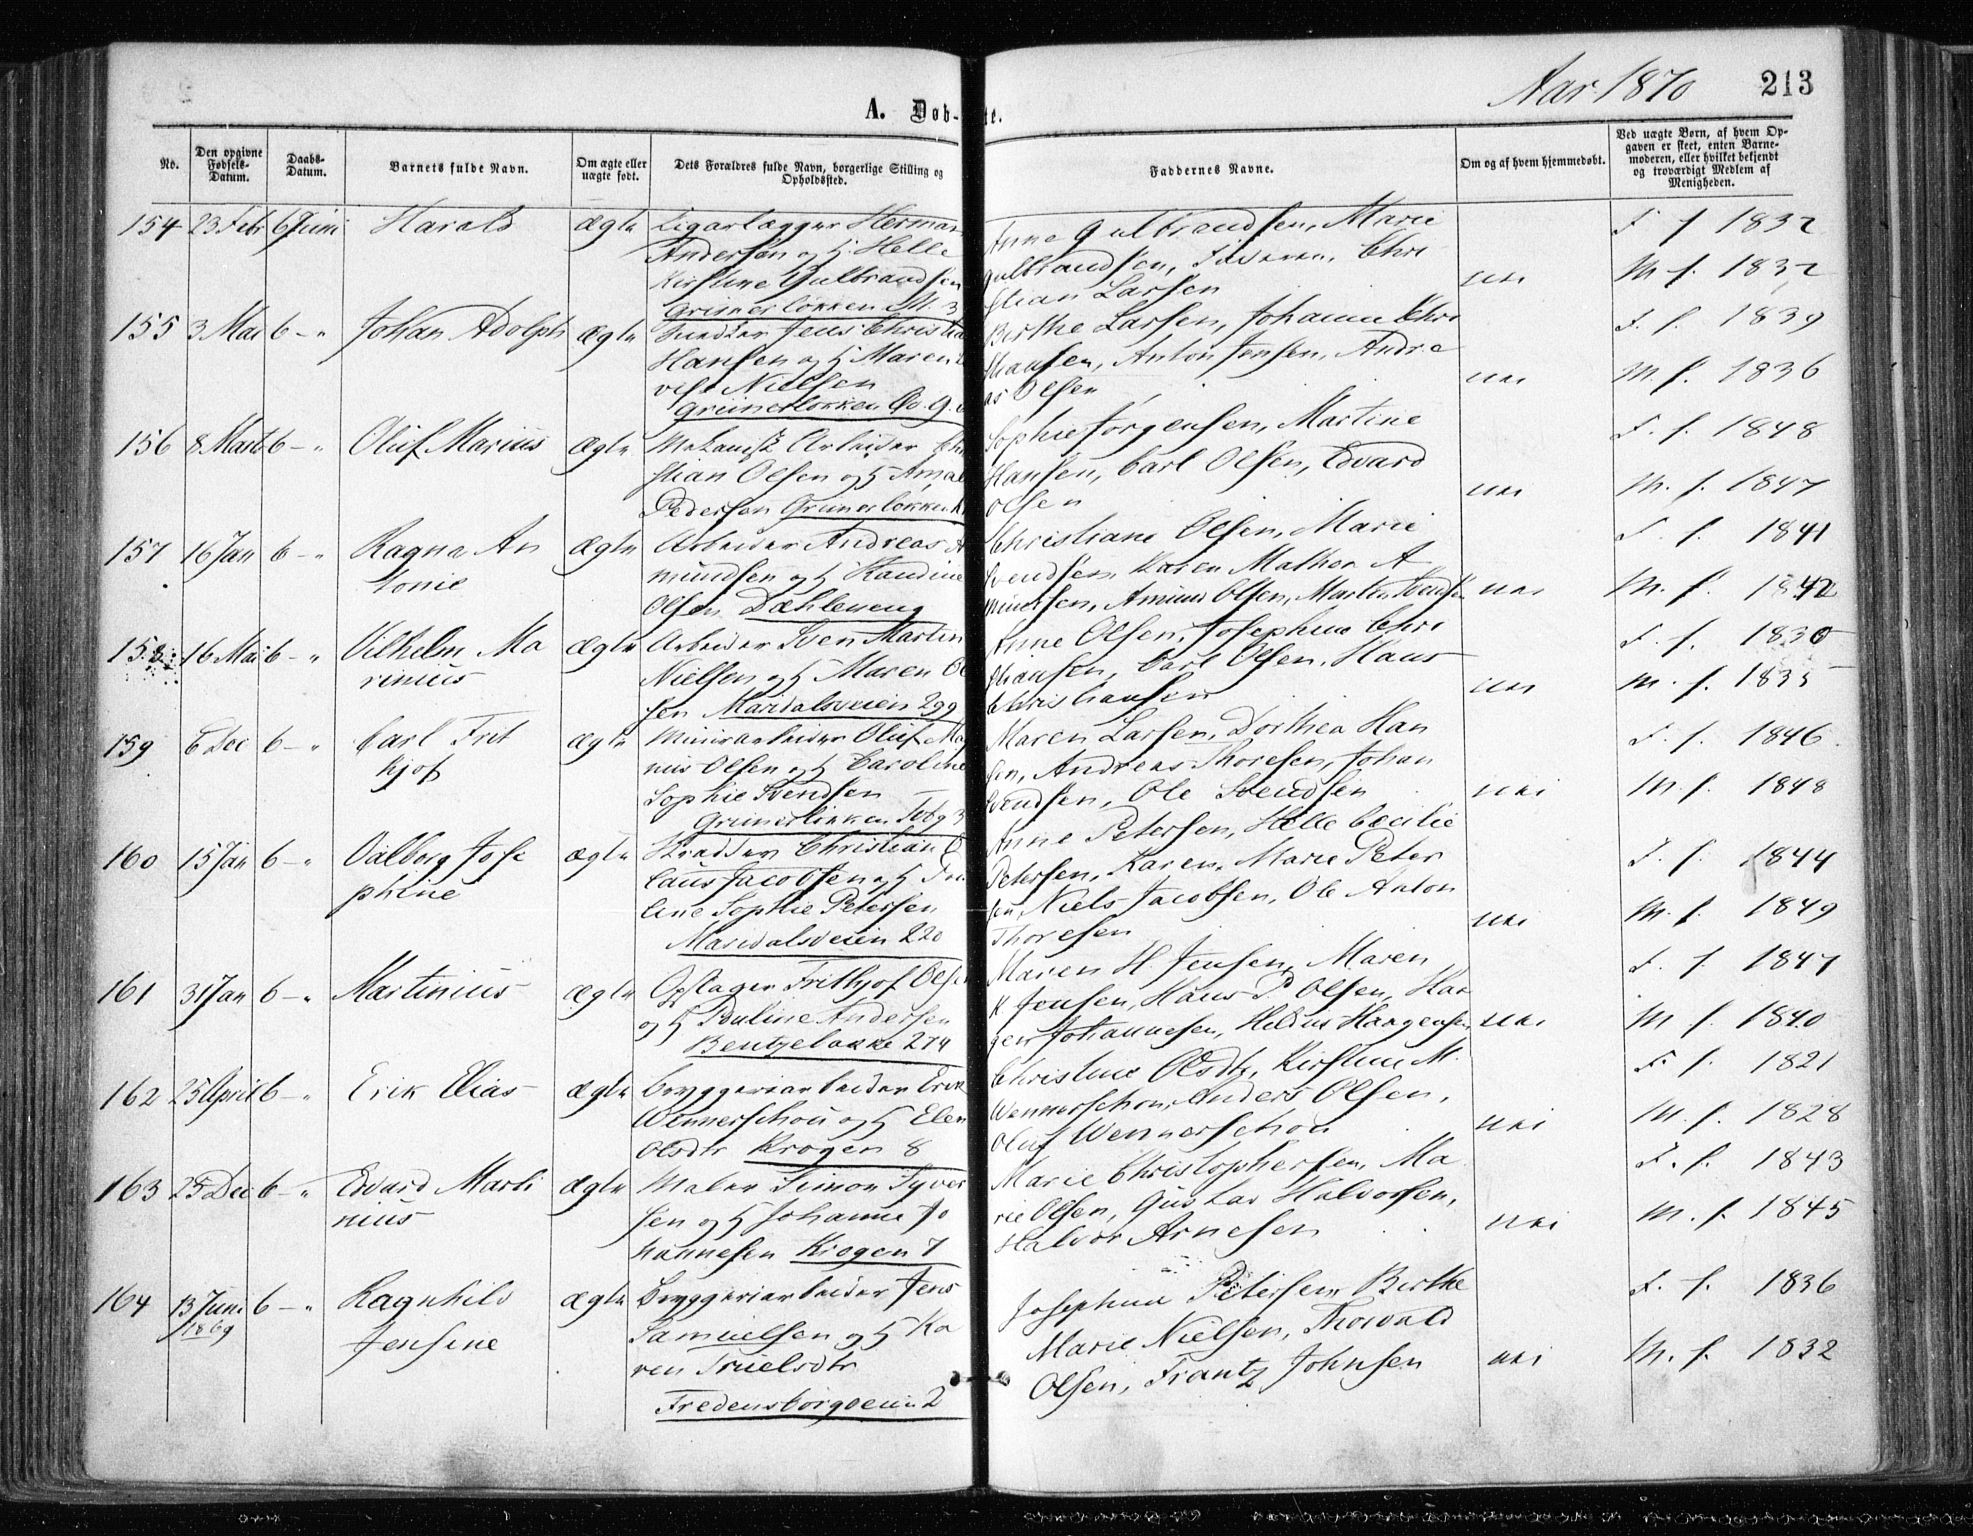 Aar 1870
213
A. Døb-
te.
No.
Den opgivne Fødsels-Datum.
Daabs-Datum.
Barnets fulde Navn.
Om ægte eller uægte født.
Dets Forældres fulde Navn, borgerlige Stilling og Opholdssted.
Faddernes Navne.
Om og af hvem hjemmedøbt.
Ved uægte Børn, af hvem Opgaven er skeet, enten Barnemoderen, eller hvilket bekjendt og troværdigt Medlem af Menigheden.
154 23 Febr 6 Juni Harald ægte
Herman
Andersen og H. Helle
Kirstine Gulbrandsen
Grünerløkken
Anne Gulbrandsen, Marie
Gulbrandsen, Faderen, Chri
stian Larsen
nei
F. f. 1832
M. f. 1832
155 3 Mai 6 - " Johan Adolph ægte
Jens Christian
Hansen og H. Maren
Nielsen
Grünerløkken
Birthe Larsen, Johanne Chri
stiansen, Anton Jensen, Andre
as Olsen
nei
F. f. 1839
M. f. 1836
156 8 Marts 6 - " Oluf Marius ægte
Mekanisk Arbeider Chri
stian Olsen og H.
Pedersen Grünerløkken
Sophie Jørgensen, Martine
Hansen, Carl Olsen, Edvard
Olsen
nei
F. f. 1848
M. f. 1847
157 16 Jan 6 - " Ragna An
tonie
ægte
Arbeider Andreas A
mundsen og H. Kandine
Olsen Dæhleneng
Christiane Olsen, Marie
Svendsen, Karen Mathea A
mundsen, Amund Olsen, Martin Svendsen
nei
F. f. 1841
M. f. 1842
158 16 Mai 6 - " Vilhelm Ma
rinius
ægte
Arbeider Sven Martin
Nielsen og H. Maren Ol
sen Maridalsveien 299
Anne Olsen, Josephine Chri
stiansen, Carl Olsen, Hans
Christiansen
nei
F. f. 1830
M. f. 1835
159 6 Dec 6 - " Carl Frit
hjof
ægte
Minerarbeider Oluf Mag
nus Olsen og H. Caroline
Sophie Svendsen
Grünerløkken
Maren Larsen, Dorthea Han
sen, Andreas Thoresen, Johan
Svendsen, Ole Svendsen
nei
F. f. 1846
M. f. 1848
160 15 Jan 6 - " Valborg Jose
phine
ægte
Skrædder Christian C
laus Jacobsen og H. Pau
line Sophie Petersen
Maridalsveien 220
Anne Petersen, Helle Cecilie
Petersen, Karen Marie Peter
sen, Niels Jacobsen, Ole Anton
Thoresen
nei
F. f. 1844
M. f. 1849
161 31 Jan 6 - " Martinius ægte
Opslager Frithjof Olsen
og H. Pauline Andersen
Bentzeløkke 274
Maren H. Jensen, Maren
K Jensen, Hans P Olsen, Haa
gen Johannesen, Haagensen
nei
F. f. 1847
M. f. 1840
162 25 April 6 - " Erik Elias ægte
Bryggeriarbeider Erik
Wennerschou og H. Elen
Olsdtr Krogen 8
Christine Olsdtr, Kirstine M.
Wennerschou, Anders Olsen,
Oluf Wennerschou
nei
F. f. 1821
M. f. 1828
163 25 Dec 6 - " Edvard Marti
nius
ægte
Maler Simon Syver
sen og H. Johanne Jo
hannesen Krogen 7
Marie Christophersen, Ma
rie Olsen, Gustav Halvorsen,
Halvor Arnesen
nei
F. f. 1843
M. f. 1845
164 13 Juni 1869 6 - " Ragnhild
Jensine
ægte
Bryggeriarbeider Jens
Samuelsen og H. Ka
ren Truelsdtr
Fredensborgveien 2
Josephine Petersen, Birthe
Marie Nielsen, Thorvald
Olsen, Frantz Johnsen
nei
F. f. 1836
M. f. 1832